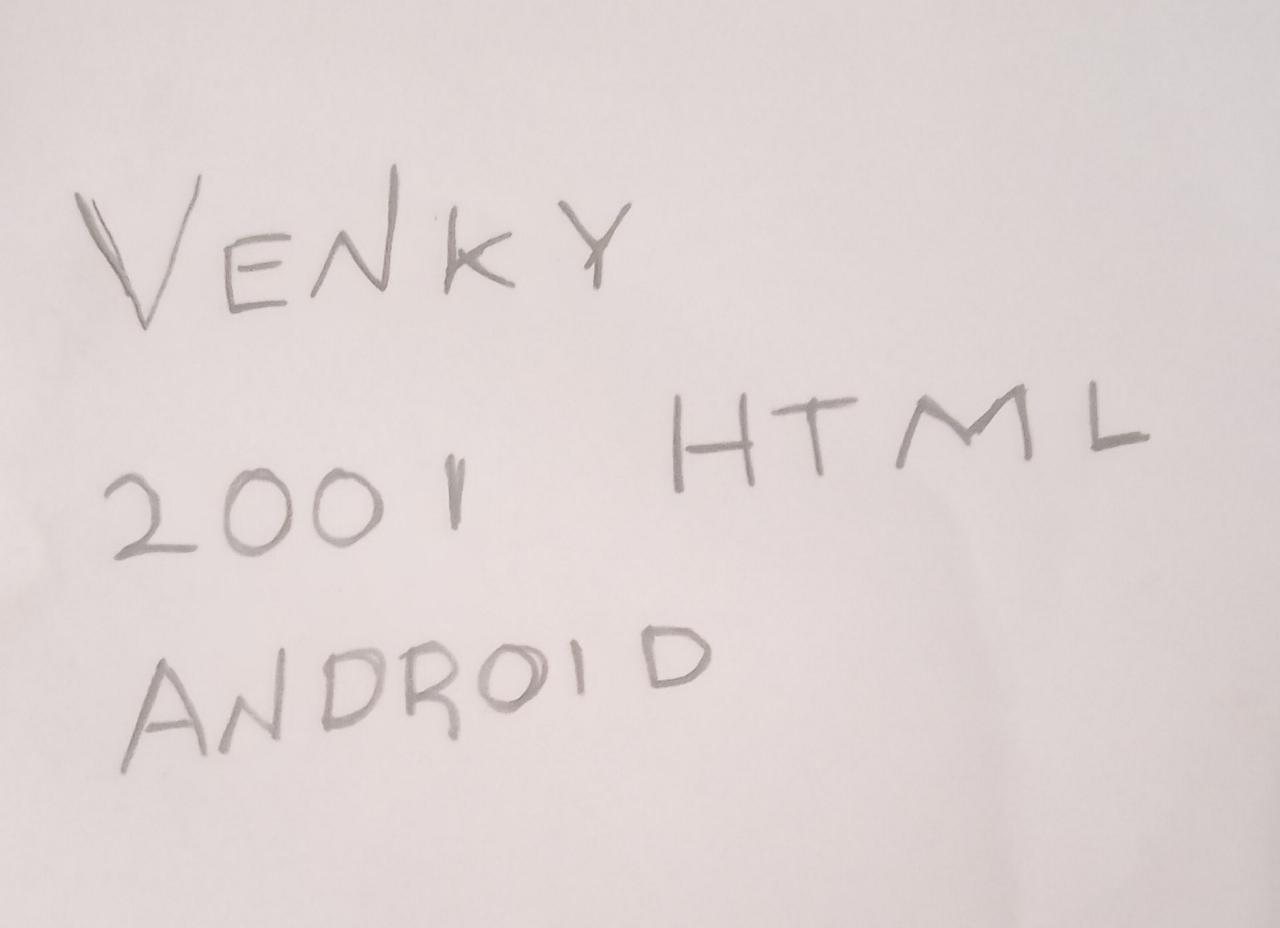 VENKY
2001 HTML
ANDROID